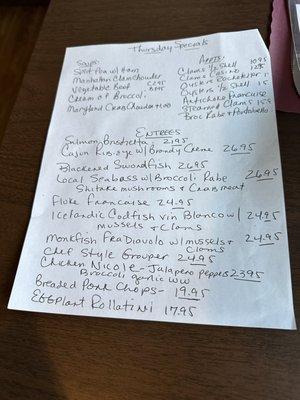 Thursday Specials
Soups:
Split Pea w/ Ham
Manhattan Clam Chowder
Vegetable Beef
Cream of Broccoli
Maryland Crab Chowder
Apps:
Clams ½ Shell 10.95
Clams Casino
Oysters Rockefeller
Oysters ½ Shell
Artichoke Francaise
Steamed Clams
Broc Rabe + Portobello
Entrees
Salmon Bruschetta 21.95
Cajun Ribeye w/ Brandy Creme 26.95
Blackened Swordfish 26.95
Local Seabass w/ Broccoli Rabe 26.95
Shitake mushrooms & Crabmeat
Fluke Francaise 24.95
Icelandic Codfish vin Blanco w/ 24.95
mussels & Clams
Monkfish Fra Diavolo w/ mussels & 24.95
Clams
Chef Style Grouper 24.95
Chicken Nicole - Jalapeno Peppers 23.95
Broccoli garlic WW
Breaded Pork Chops - 19.95
Eggplant Rollatini 17.95